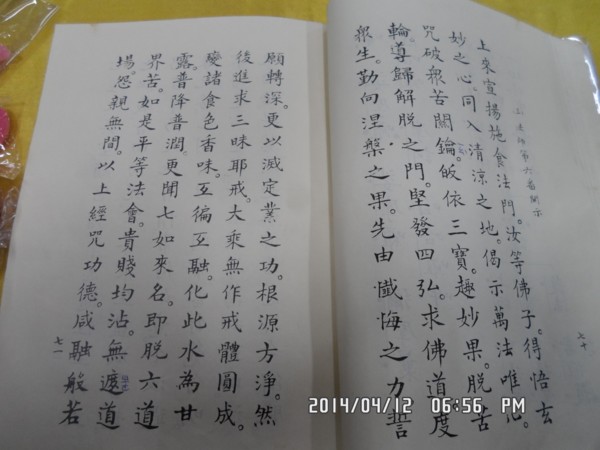 師第六番開示
上來宣揚施食法門。汝等佛子。得悟玄
妙之心。同入清涼之地。偈示萬法唯心。
咒破眾苦關鑰。皈依三寶。趣妙果。脫苦
輪。導歸解脫之門。堅發四弘。求佛道度
眾生。勤向涅槃之果。先由懺悔之力誓
七十
願轉深。更以滅定業之功。根源方淨。然
後進求三昧耶戒。大乘無作戒體圓成。
變諸食色香味。互徧互融。化此水為甘
露。普降普潤。更聞七如來名。即脫六道
界苦。如是平等法會。貴賤均沾。無遮道
場。怨親無間。以上經咒功德。咸融般若
七一
2014/04/12 06:56 PM